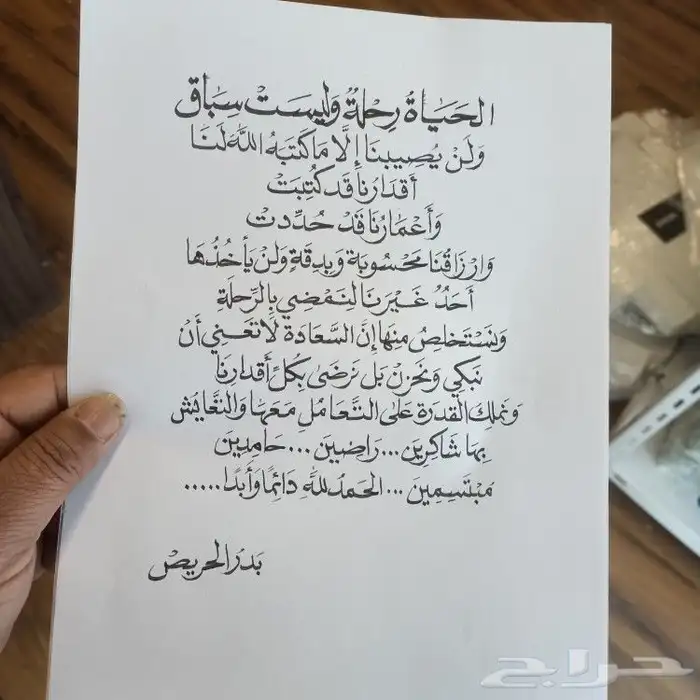 الحَيَاةُ رِحْلَةٌ وَلَيسَتْ سِبَاق
وَلَنْ يُصِيبنَا إِلَّا مَا كَتَبَهُ اللهُ لَنَا
أَقدَارنَا قَد كُتِبَتْ
وَأَعْمَارُنَا قَدْ حُدِّدت
وَارْزَاقُنَا مَحْسُوبَة وَبِدِقَةٍ وَلَنْ يأخُذُهَا
أَحَدٌ غَيرَنَا لِنَمْضِي بِالرِّحلَةِ
وَنَستَخلِصُ مِنهَا إِنَّ السَّعَادَة لَا تَعْنِي أَنْ
نَبكِي وَنَحزنْ بَل نَرضَى بِكُلِّ أَقدَارِنَا
وَنملك القدرَة عَلَى التَّعَامُلِ مَعَهَا وَالتَّعَايُش
بِهَا شَاكِرِينَ ... رَاضِيينَ ... حَامِدِينَ
مُبْتَسِمِينَ ... الحَمدُ للهِ دَائِمًا وَأَبَدًا .....
بَدرُ الحَرِيصْ
حراج